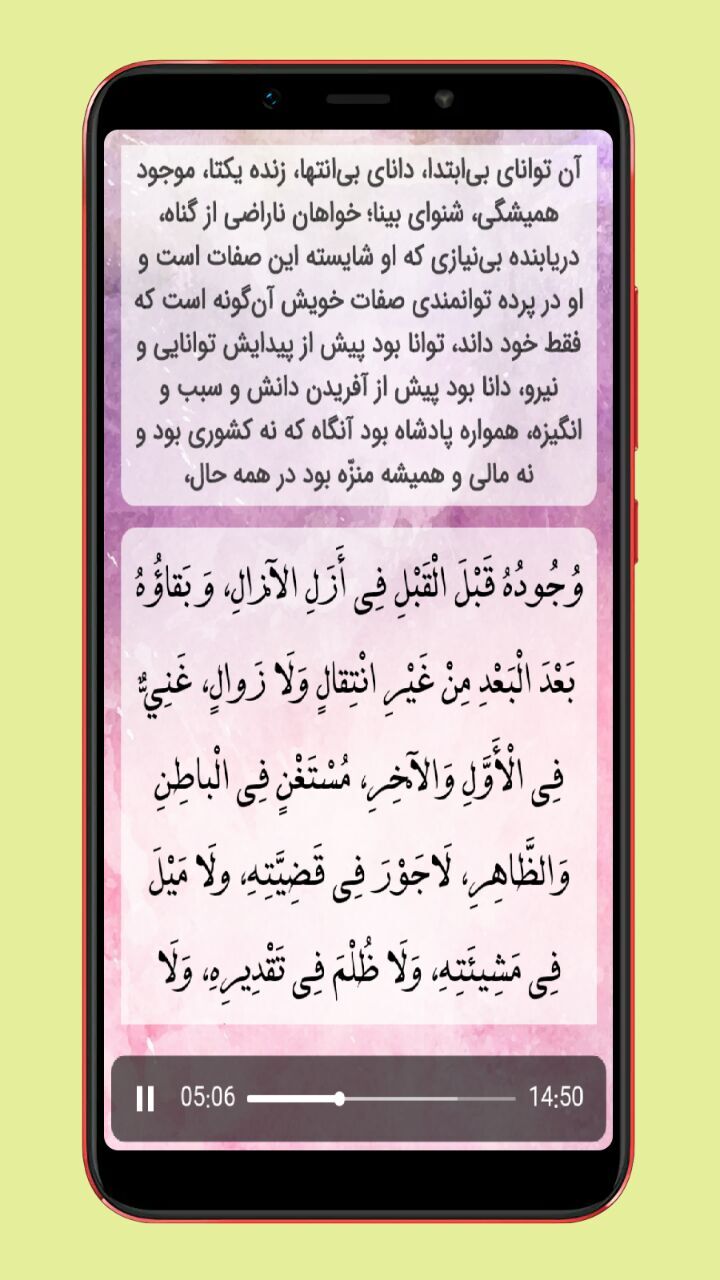 آن توانای بی‌ابتدا، دانای بی‌انتها، زنده یکتا، موجود
همیشگی، شنوای بینا؛ خواهان ناراضی از گناه،
دریابنده بی‌نیازی که او شایسته این صفات است و
او در پرده توانمندی صفات خویش آن‌گونه است که
فقط خود داند، توانا بود پیش از پیدایش توانایی و
نیرو، دانا بود پیش از آفریدن دانش و سبب و
انگیزه، همواره پادشاه بود آنگاه که نه کشوری بود و
نه مالی و همیشه منزّه بود در همه حال،
وُجُودُهُ قَبْلَ الْقَبْلِ فِی أَزَلِ الآزالِ، وَ بَقاؤُهُ
بَعْدَ الْبَعْدِ مِنْ غَیْرِ انْتِقالٍ وَلَا زَوالٍ، غَنِیٌّ
فِی الْأَوَّلِ وَالآخِرِ، مُسْتَغْنٍ فِی الْباطِنِ
وَالظَّاهِرِ، لَاجَوْرَ فِی قَضِیَّتِهِ، ولَا مَیْلَ
فِی مَشِیئَتِهِ، وَلَا ظُلْمَ فِی تَقْدِیرِهِ، وَلَا
05:06 14:50